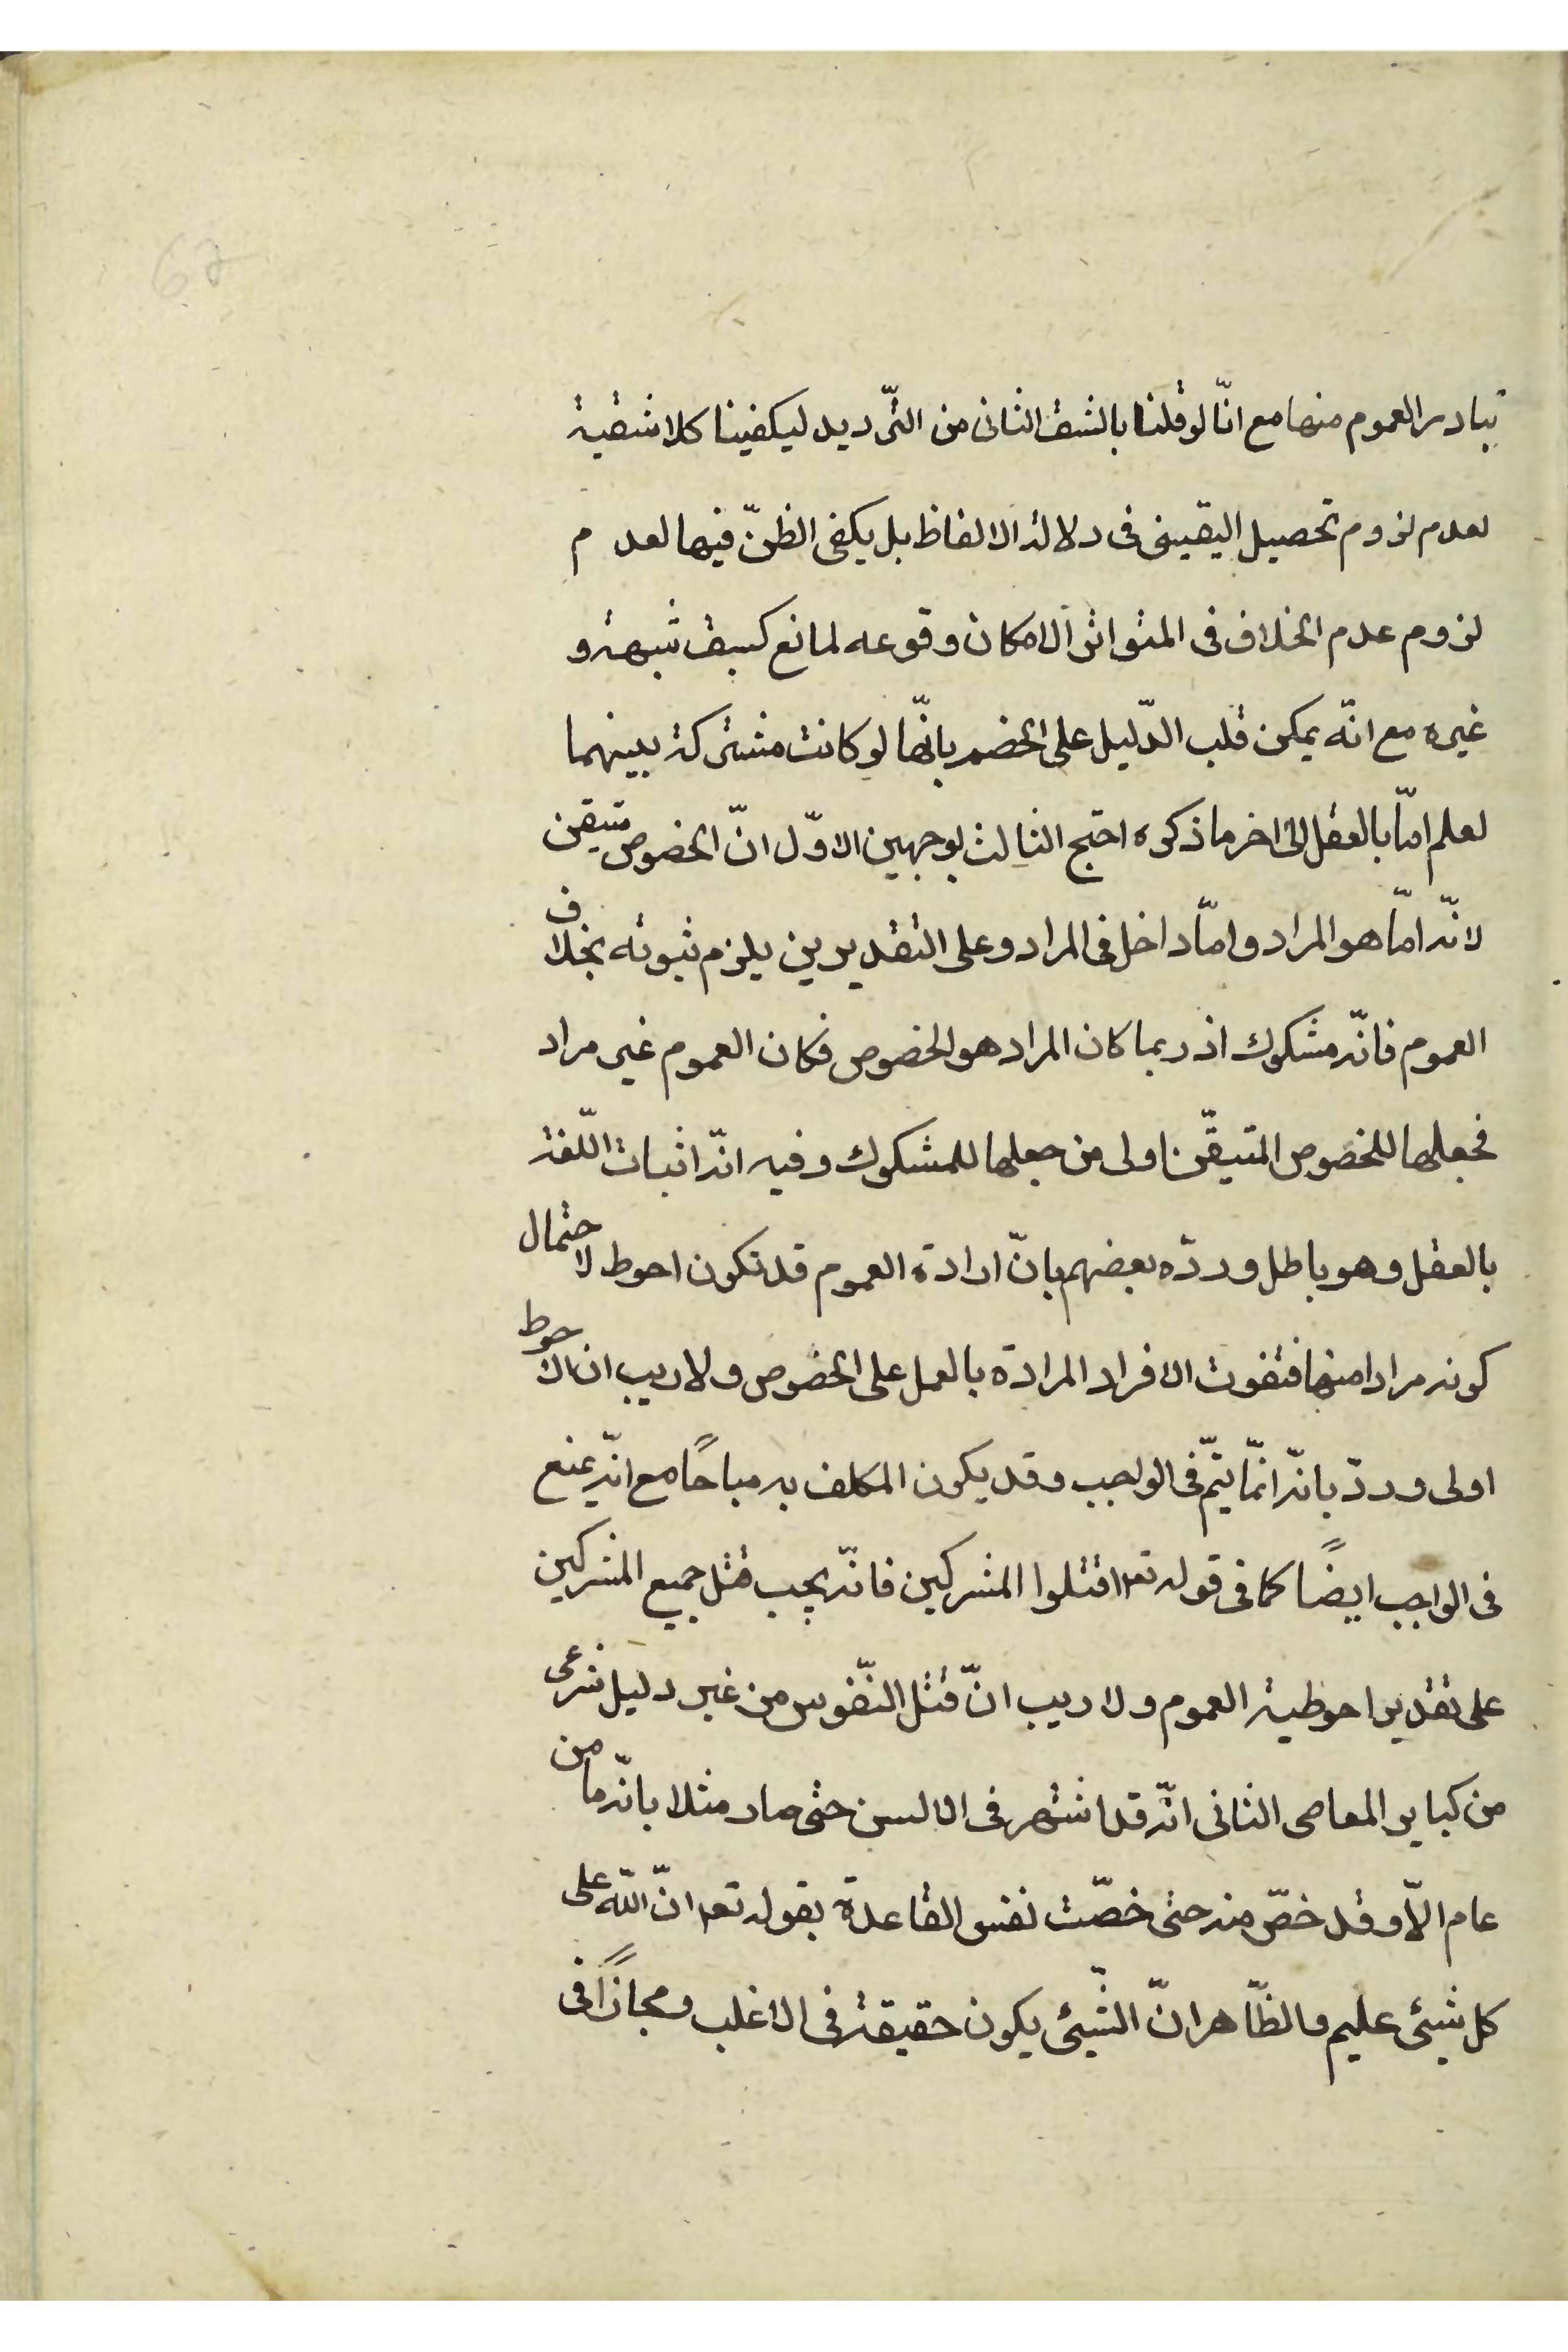 تبادر العموم منها مع انّا لو قلنا بالشق الثانى من التّرديد ليكفينا كلا شقيه
لعدم لزوم تحصيل اليقينى فى دلالة الالفاظ بل يكفى الظنّ فيها لعدم
لزوم عدم الخلاف فى المتواتر الامكان وقوعه لمانع كسبق شبهة و
غيره مع انّه يمكن قلب الدّليل على الخصم بانّها لو كانت مشتركة بينهما
لعلم امّا بالعقل الى اخر ما ذكره احتج الثالث بوجهين الاوّل انّ الخصوص متيقن
لانّه امّا هو المراد و امّا داخل فى المراد و على التقديرين يلزم ثبوته بخلاف
العموم فانّه مشكوك اذ ربما كان المراد هو الخصوص فكان العموم غير مراد
فجعلها للخصوص المتيقّن اولى من جعلها للمشكوك و فيه انّه اثبات اللّغة
بالعقل و هو باطل و ردّه بعضهم بانّ ارادة العموم قد تكون احوط لاحتمال
كونه مرادا منها فتفوت الافراد المرادة بالعمل على الخصوص و لا ريب ان الاحوط
اولى و ردّ بانّه انّما يتمّ فى الواجب و قد يكون المكلف به مباحًا مع انّه يمنع
فى الواجب ايضًا كما فى قوله تعا اقتلوا المشركين فانّه يجب قتل جميع المشركين
على تقدير احوطية العموم و لا ريب انّ قتل النّفوس من غير دليل شرعى
من كباير المعاصى الثانى انّه قد اشتهر فى الالسن حتى صار مثلا بانّه ما من
عام الّا و قد خصّ منه حتى خصّت نفس القاعدة بقوله تعا انّ اللّه على
كل شيئى عليم و الظّاهر انّ الشّيئى يكون حقيقة فى الاغلب و مجازًا فى
67